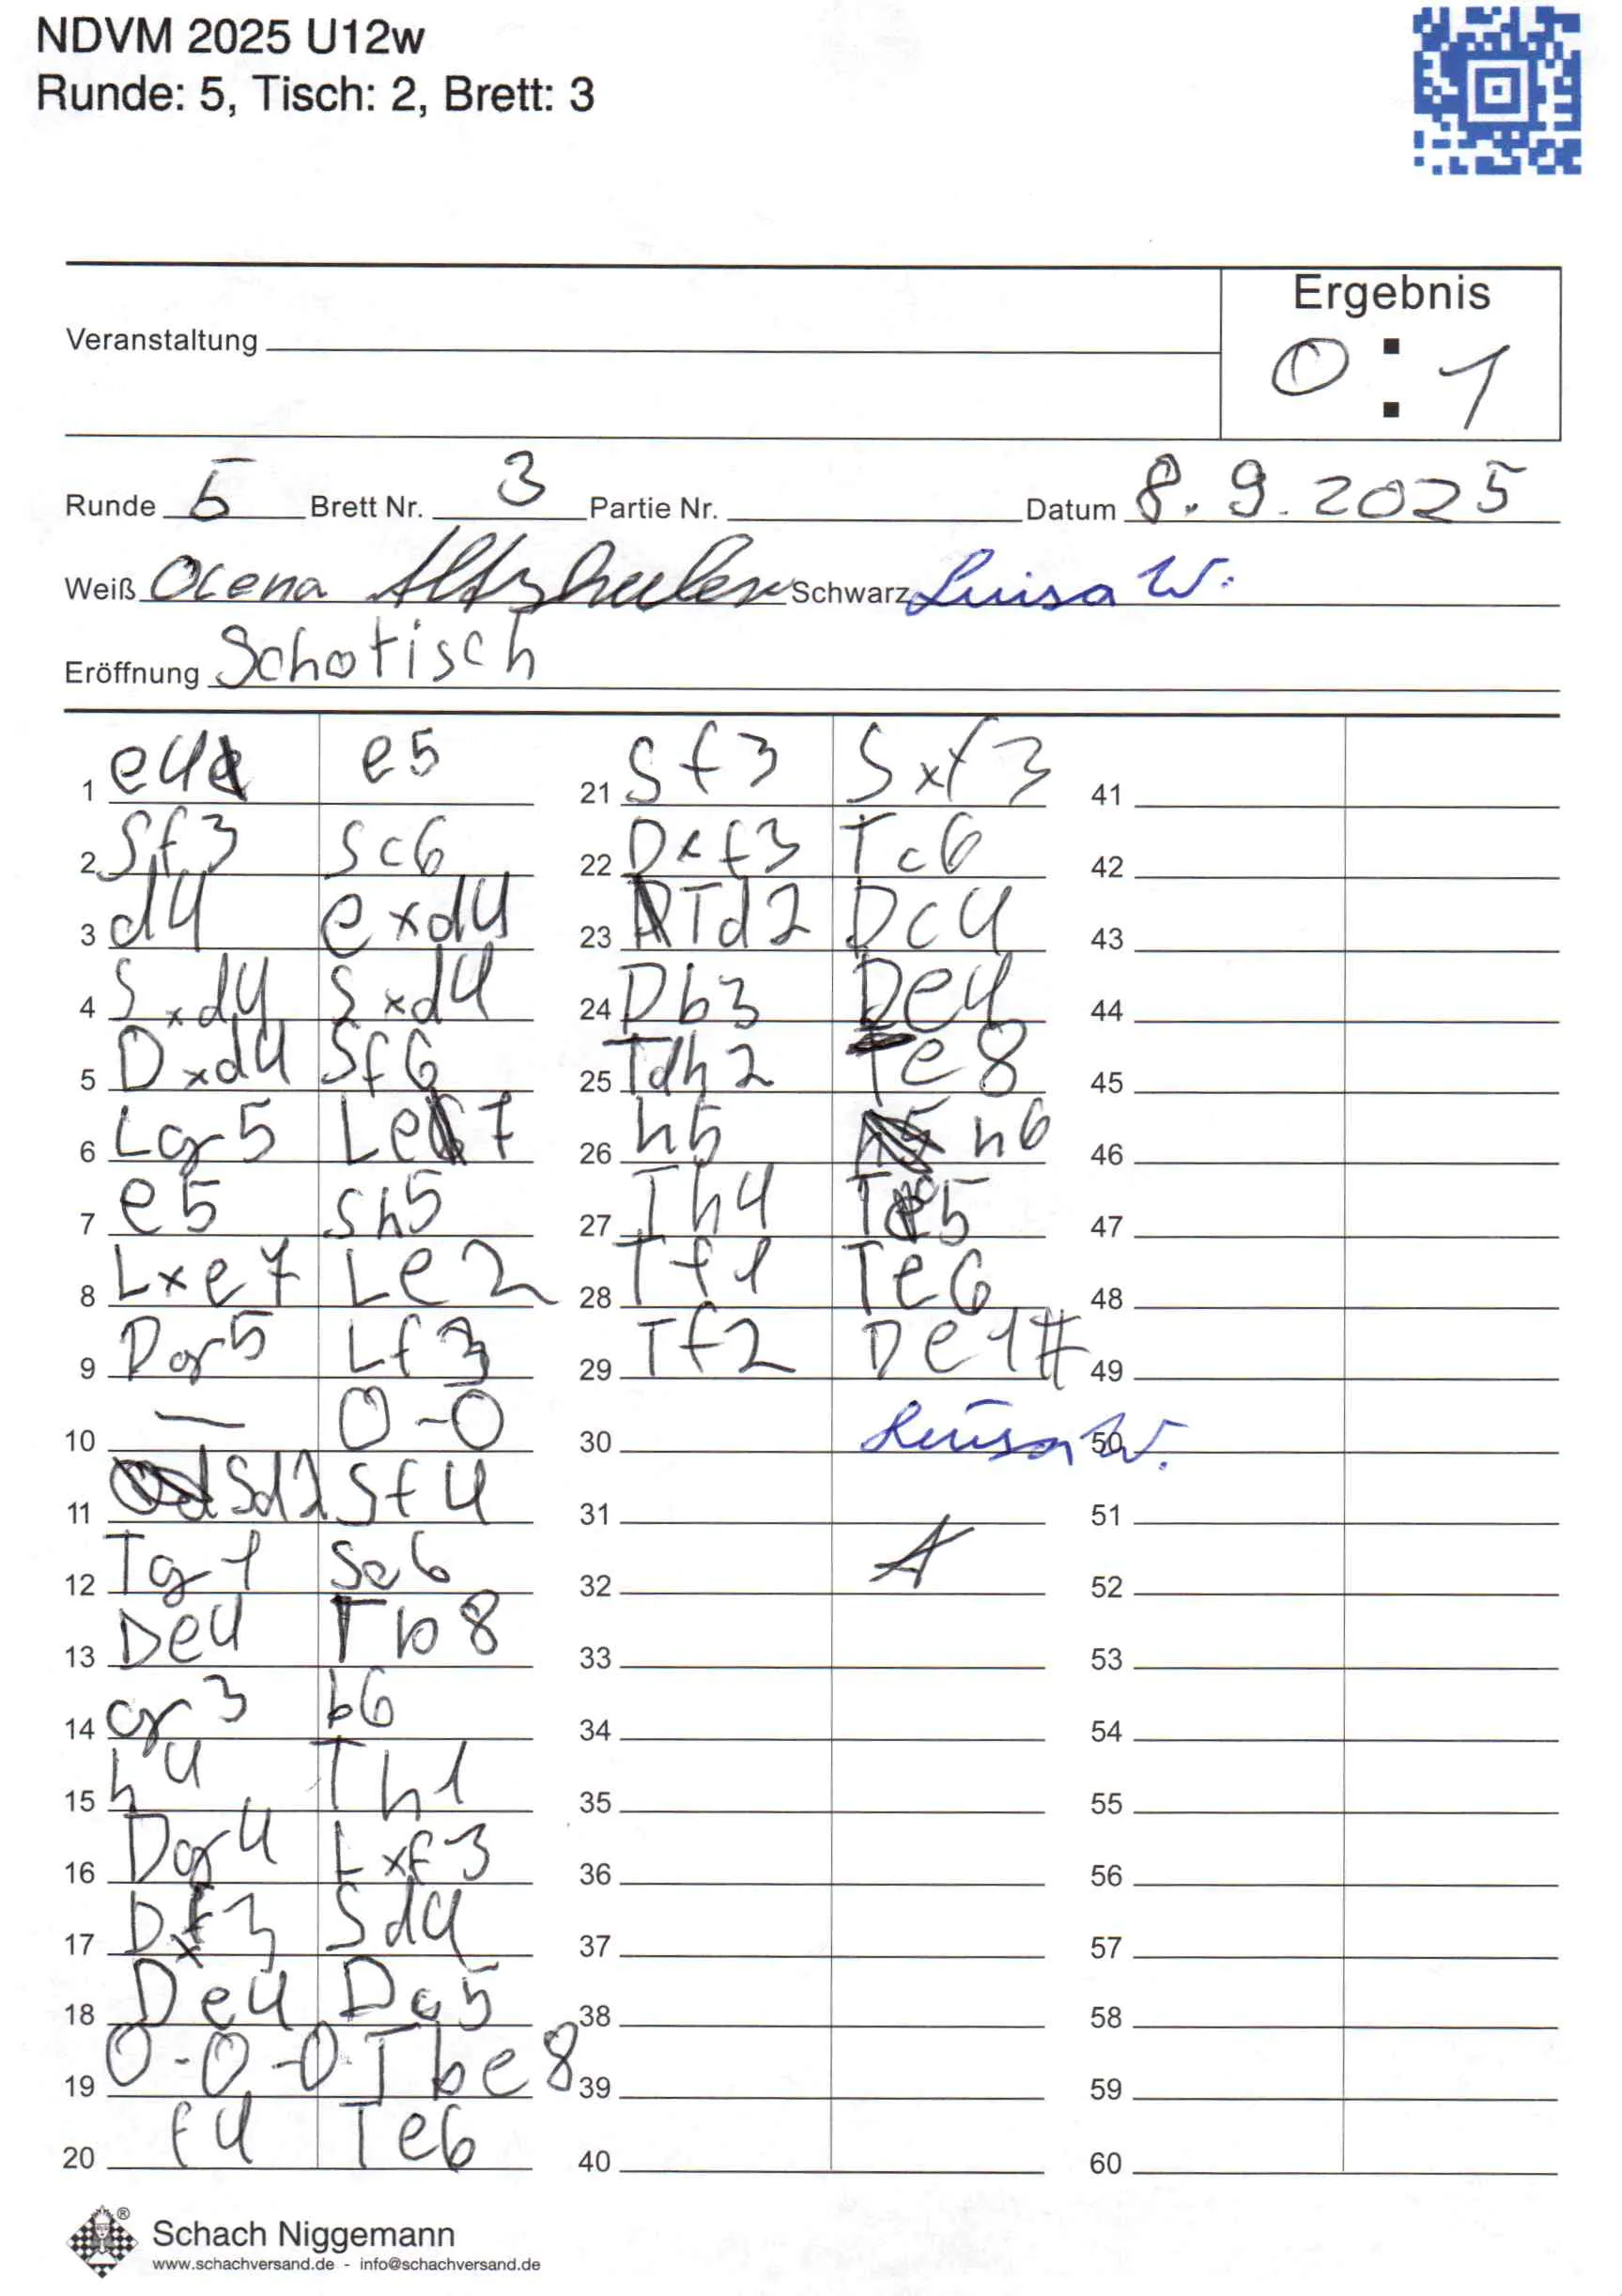 NDVM 2025 U12w
Runde: 5, Tisch: 2, Brett: 3
Ergebnis
Veranstaltung
0 : 1
Runde 5 Brett Nr. 3 Partie Nr. Datum 8.9.2025
Weiß Schwarz Luisa W.
Eröffnung Schotisch
1 e4 e5
2 Sf3 Sc6
3 d4 exd4
4 Sxd4 Sxd4
5 Dxd4 Sf6
6 Lg5 Le7
7 e5 Sh5
8 Lxe7 Le2
9 Dg5 Lf3
10 — 0-0
11 Sd2 Sf4
12 Tg1 Se6
13 De4 Tb8
14 g3 b6
15 h4 Th1
16 Dg4 Lxf3
17 Dxf3 Sd4
18 De4 Dg5
19 0-0-0 Tbe8
20 f4 Te6
21 Sf3 Sxf3
22 Dxf3 Tc6
23 Td2 Dc4
24 Db3 De4
25 Tdh2 Te8
26 h5 h6
27 Th4
28 Tf1 Te6
29 Tf2 De1#
30 Luisa W.
31
32
33
34
35
36
37
38
39
40
41
42
43
44
45
46
47
48
49
50
51
52
53
54
55
56
57
58
59
60
Schach Niggemann
www.schachversand.de - info@schachversand.de